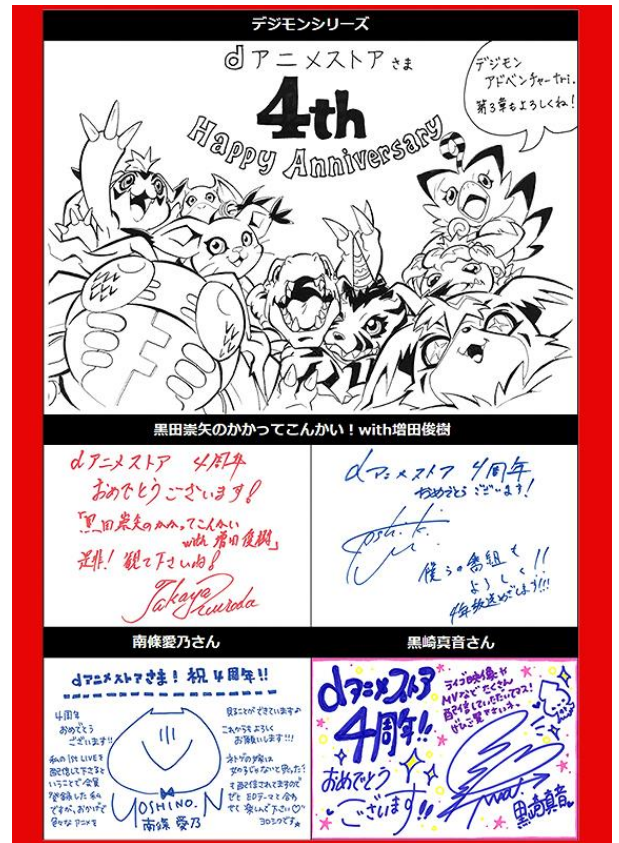 デジモンシリーズ
dアニメストア さま
4th
Happy Anniversary
デジモン
アドベンチャーtri.
第3章もよろしくね!
黒田崇矢のかかってこんかい!with増田俊樹
dアニメストア 4周年
おめでとうございます!
「黒田崇矢のかかってこんかい
with 増田俊樹」
是非!観て下さいね!
Takaya Kuroda
dアニメストア 4周年
おめでとうございます!
Toshiki
僕らの番組も
よろしく!!
4年放送めざします!!!
南條愛乃さん
dアニメストアさま! 祝4周年!!
4周年
おめでとう
ございます!!
私の1st LIVEを
配信して下さると
いうことで会員
登録した私
ですが、おかげで
色々なアニメを
見ることができています♪
これからもよろしく
お願いします!!!
ネトゲの嫁は
女の子じゃないと思った?
も配信されてますので
ぜひ EDテーマと合わ
せて楽しんで下さい♡
ヨロシクです
YOSHINO.N
南條愛乃
黒崎真音さん
dアニメストア
4周年!!
おめでとう
ございます!!
ライブ映像や
MVなどたくさん
配信していただいてマス!
ぜひご覧下さいネ
黒崎真音